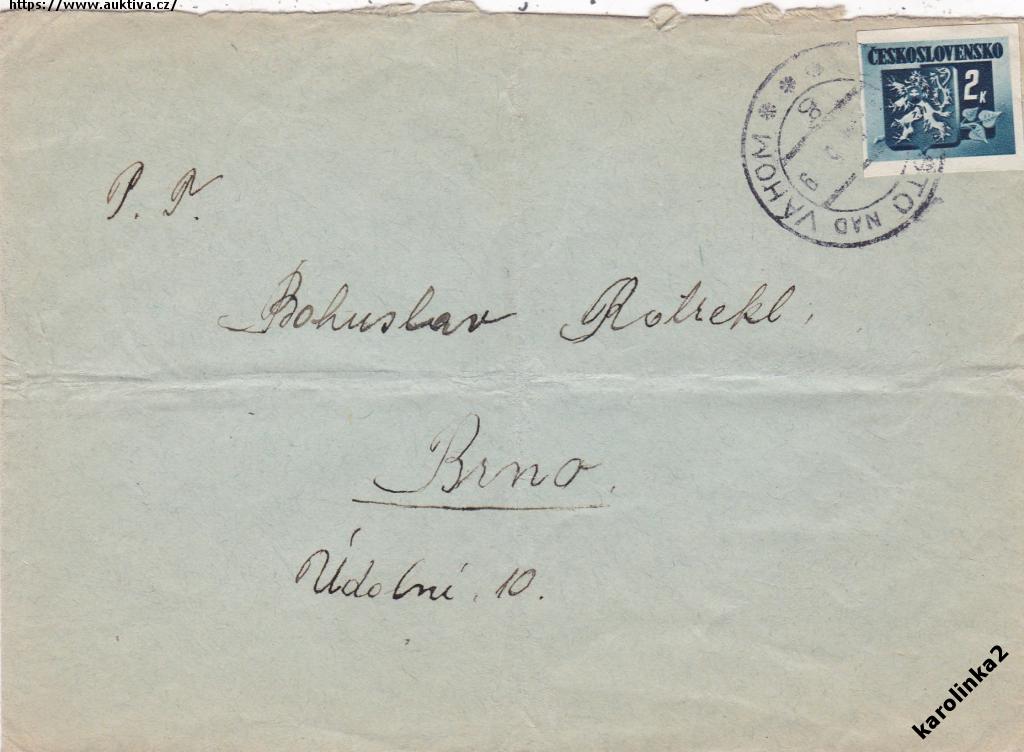 https://www.auktiva.cz/
ČESKOSLOVENSKO
2 K
NAD VÁHOM
P. T.
Bohuslav Rotrekl,
Brno.
Údolní 10.
karolinka2